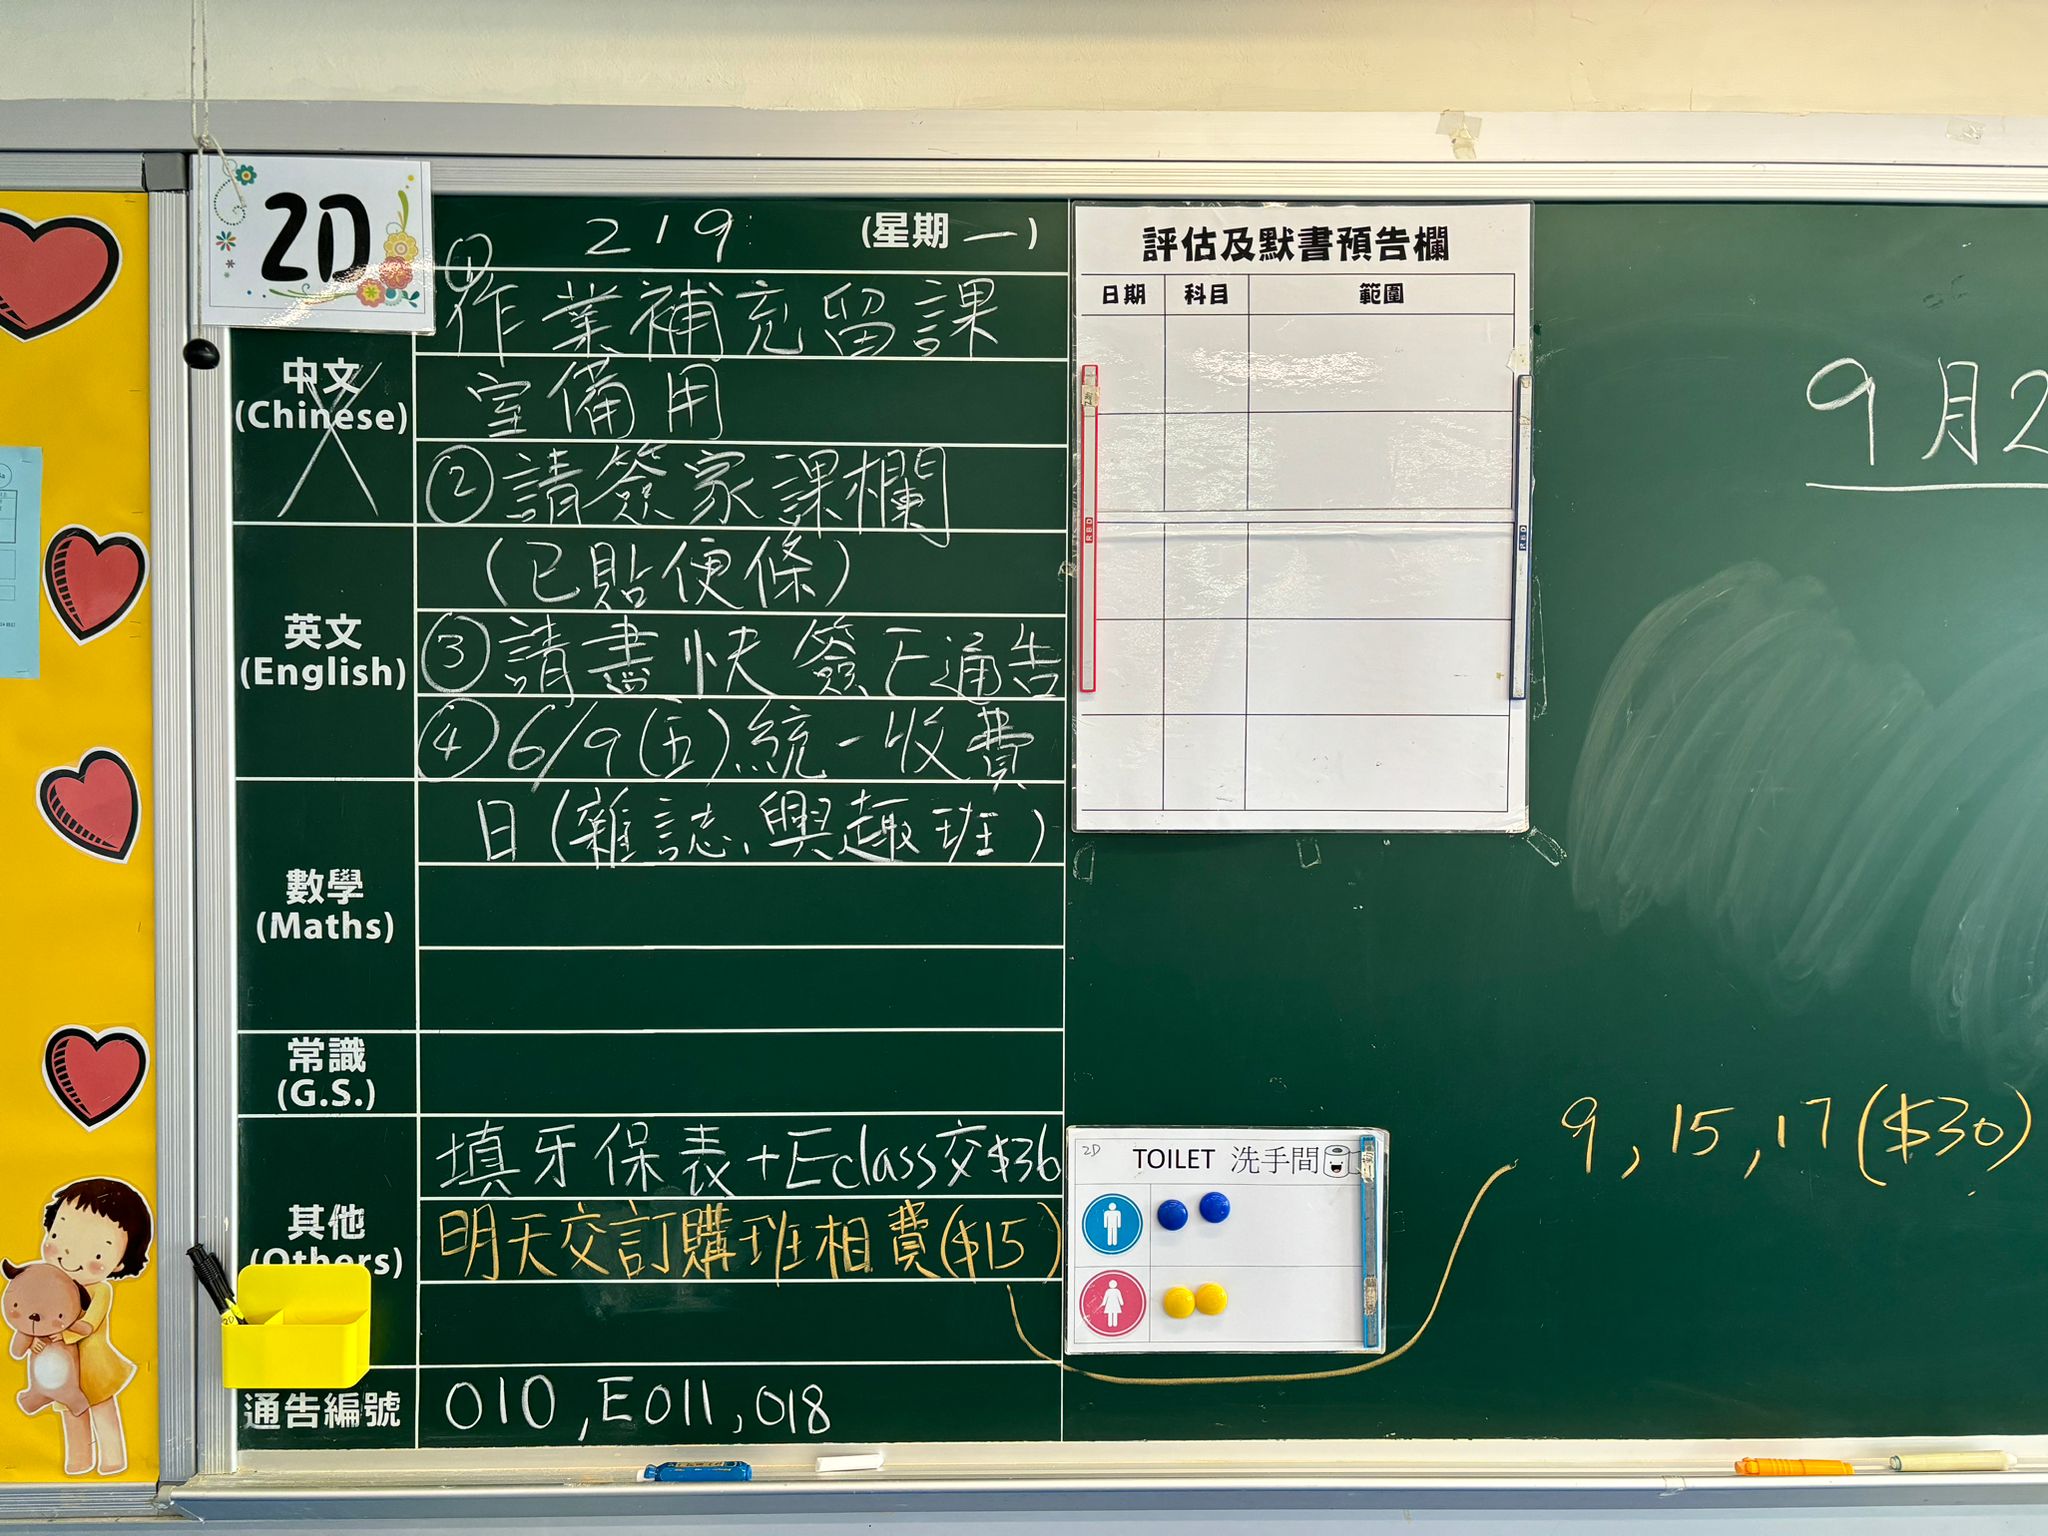 2D
2 / 9 (星期一)
①作業補充留課
室備用
中文
(Chinese)
②請簽家課欄
(已貼便條)
英文
(English)
③請盡快簽E通告
④6/9(五)統一收費
日(雜誌、興趣班)
數學
(Maths)
常識
(G.S.)
填牙保表+Eclass交$36
其他
(Others)
明天交訂購班相費($15)
通告編號
010,E011,018
評估及默書預告欄
日期 科目 範圍
RBD
RBD
9月2
9,15,17($30)
2D
TOILET 洗手間